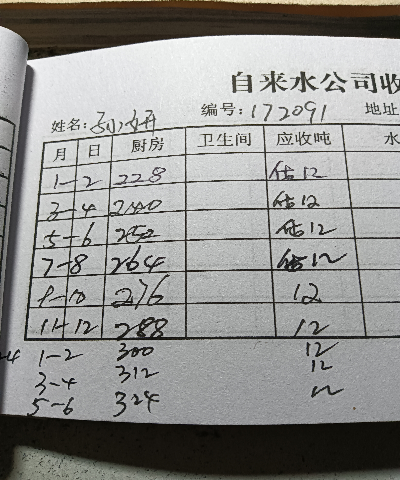 自来水公司收
姓名: 编号:172091 地址
月 日 厨房 卫生间 应收吨 水
1-2 228 估12
3-4 240 估12
5-6 252 估12
7-8 264 估12
9-10 276 12
11-12 288 12
24 1-2 300 12
3-4 312 12
5-6 324 12